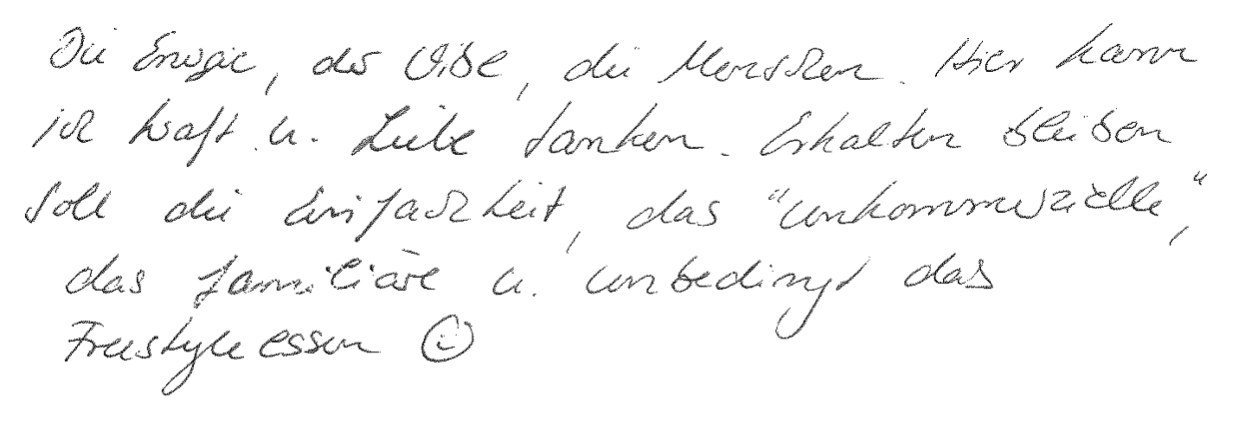 Die Energie, der Vibe, die Menschen. Hier kann
ich Kraft u. Liebe tanken. Erhalten bleiben
soll die Einfachheit, das "unkommerzielle",
das familiäre u. unbedingt das
Freestyleessen ☺